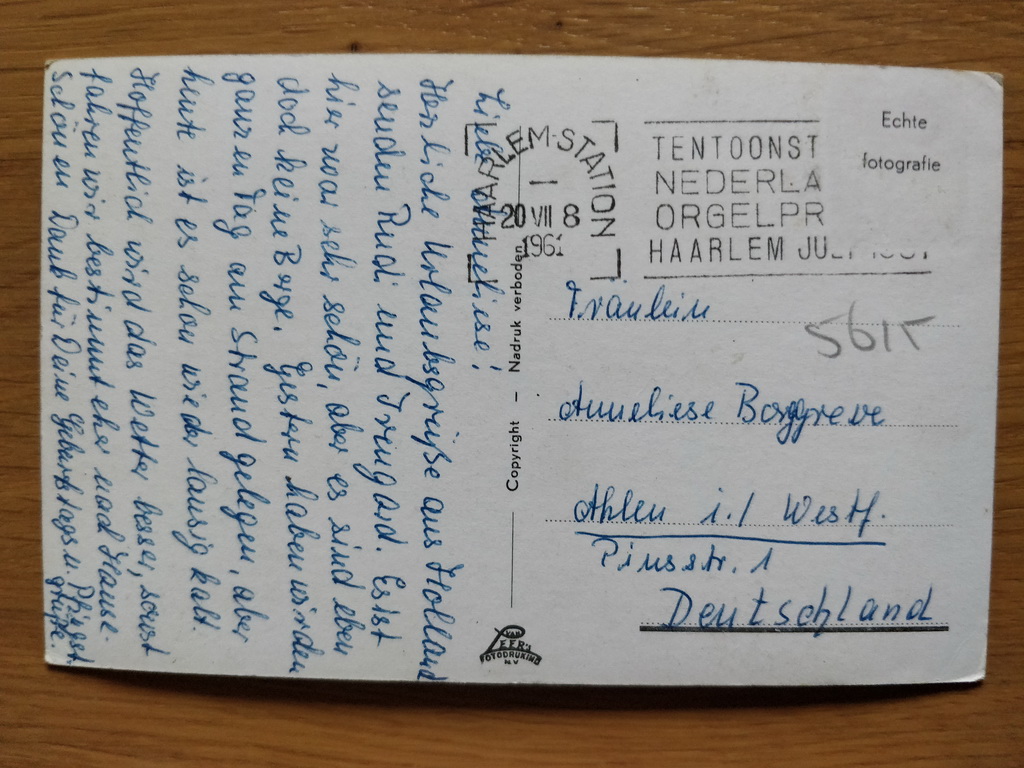 Liebe Anneliese!
Herzliche Urlaubsgrüße aus Holland
senden Rudi und Irmgard. Es ist
hier zwar sehr schön, aber es sind eben
doch keine Berge. Gestern haben wir den
ganzen Tag am Strand gelegen, aber
heute ist es schon wieder lausig kalt.
Hoffentlich wird das Wetter besser, sonst
fahren wir bestimmt eher nach Hause.
Schönen Dank für Deine Geburtstags u. Pfingst
grüße
Copyright - Nadruk verboden
VAN LEER'S
FOTODRUKIND
N.V.
HAARLEM-STATION
20 VII 8
1961
TENTOONST
NEDERLA
ORGELPR
HAARLEM JULI 1961
Echte
fotografie
Fräulein
5615
Anneliese Borggreve
Ahlen i./ Westf.
Piusstr. 1
Deutschland